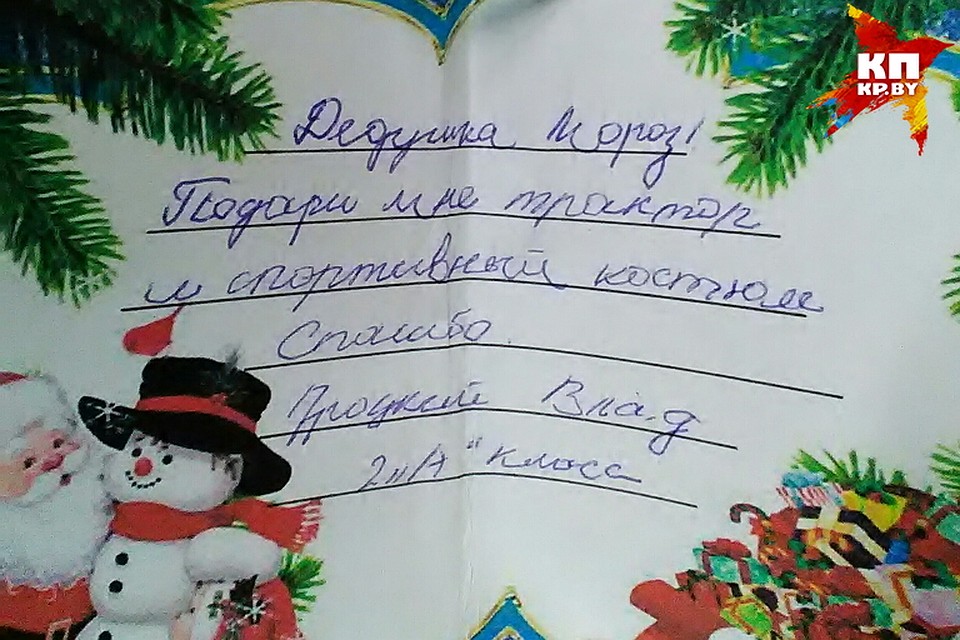 КП
KP.BY
Дедушка Мороз!
Подари мне трактор
и спортивный костюм
Спасибо.
Процкий Влад
2 "А" класс